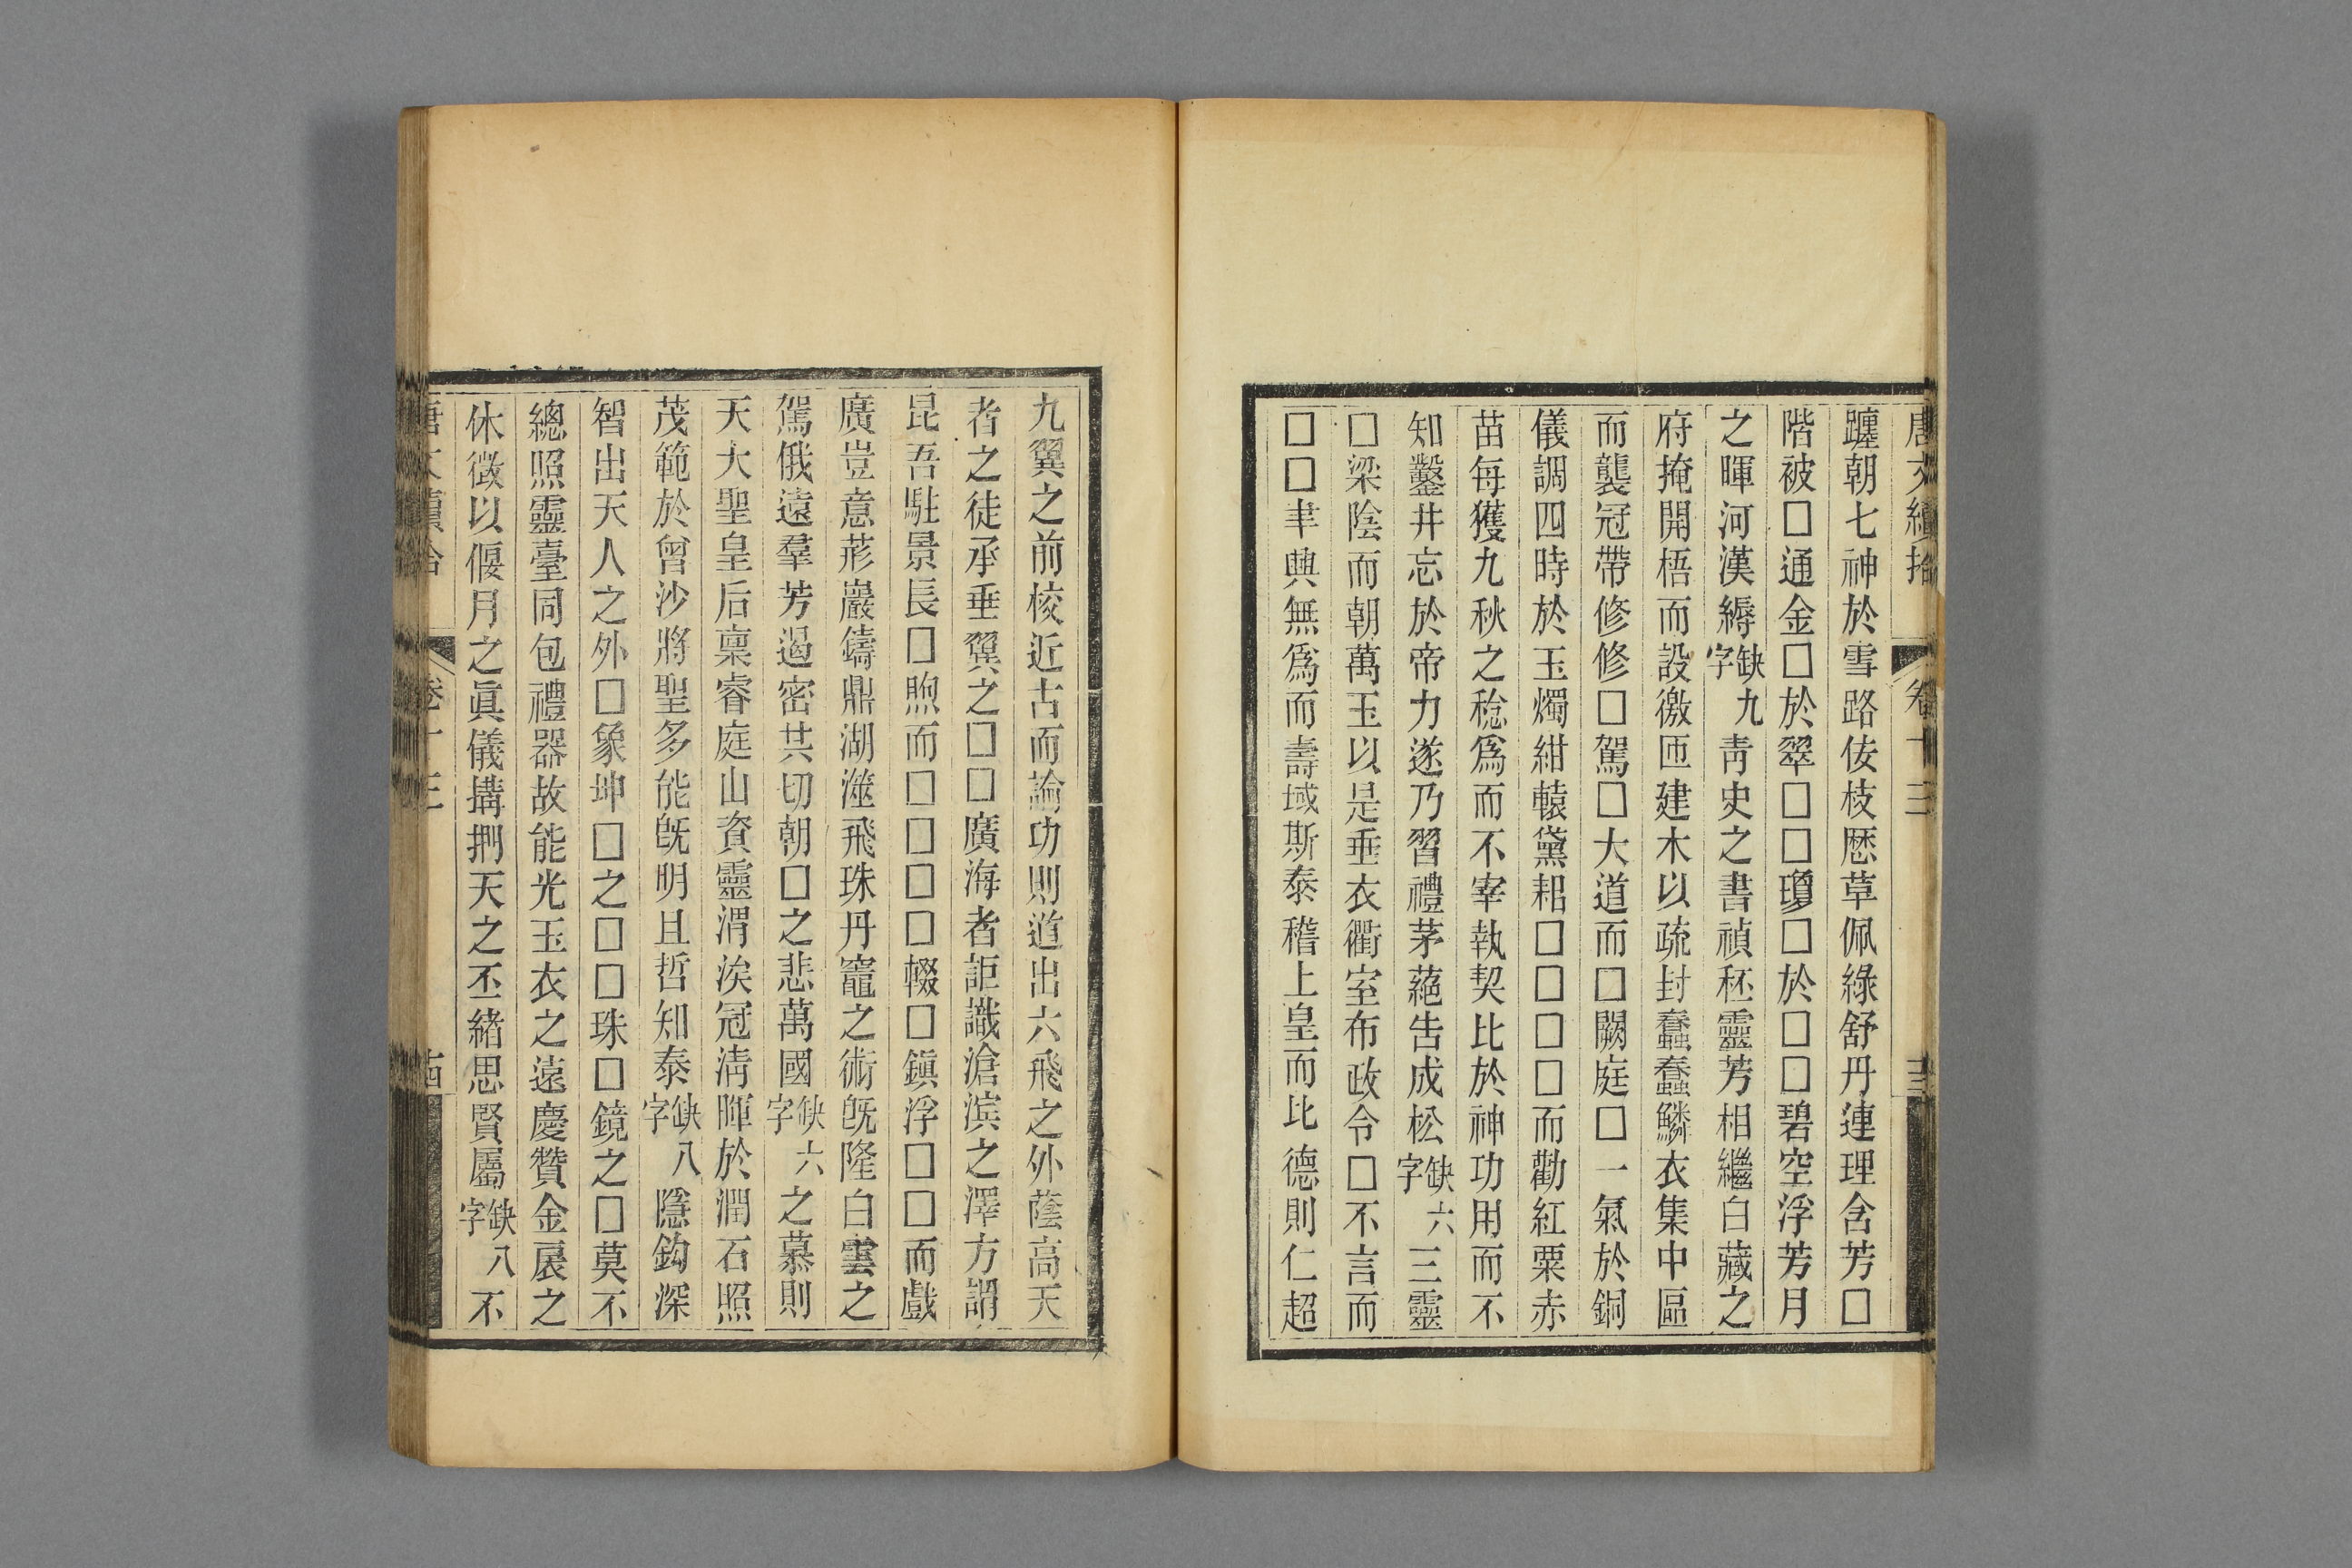 唐文續拾 卷十三 十三
躔朝七神於雪路伎枝歴草佩綠舒丹連理含芳□
階被□通金□於翠□□瓊□於□□碧空浮芳月
之暉河漢縟缺九字青史之書禎秠靈芳相繼白藏之
府掩開梧而設徼匝建木以疏封蠢蠢鱗衣集中區
而襲冠帶修修□駕□大道而□闕庭□一氣於銅
儀調四時於玉燭紺轅黛耜□□□□而勸紅粟赤
苗每獲九秋之稔爲而不宰執契比於神功用而不
知鑿井忘於帝力遂乃習禮茅蕝告成松缺六字三靈
□梁陰而朝萬玉以是垂衣衢室布政令□不言而
□□聿興無爲而壽域斯泰稽上皇而比德則仁超
九翼之前校近古而論功則道出六飛之外蔭高天
者之徒承垂翼之□□廣海者詎識滄濱之澤方謂
昆吾駐景長□煦而□□□□輟□鎮浮□□而戲
廣豈意荊巖鑄鼎湖澨飛珠丹竈之術旣隆白雲之
駕俄遠羣芳遏密共切朝□之悲萬國缺六字之慕則
天大聖皇后稟睿庭山資靈渭涘冠清暉於潤石照
茂範於曾沙將聖多能旣明且哲知泰缺八字隱鈎深
智出天人之外□象坤□之□□珠□鏡之□莫不
總照靈臺同包禮器故能光玉衣之遠慶贊金扆之
休徵以偃月之眞儀搆捫天之丕緒思賢屬缺八字不
唐文續拾 卷十三 十四